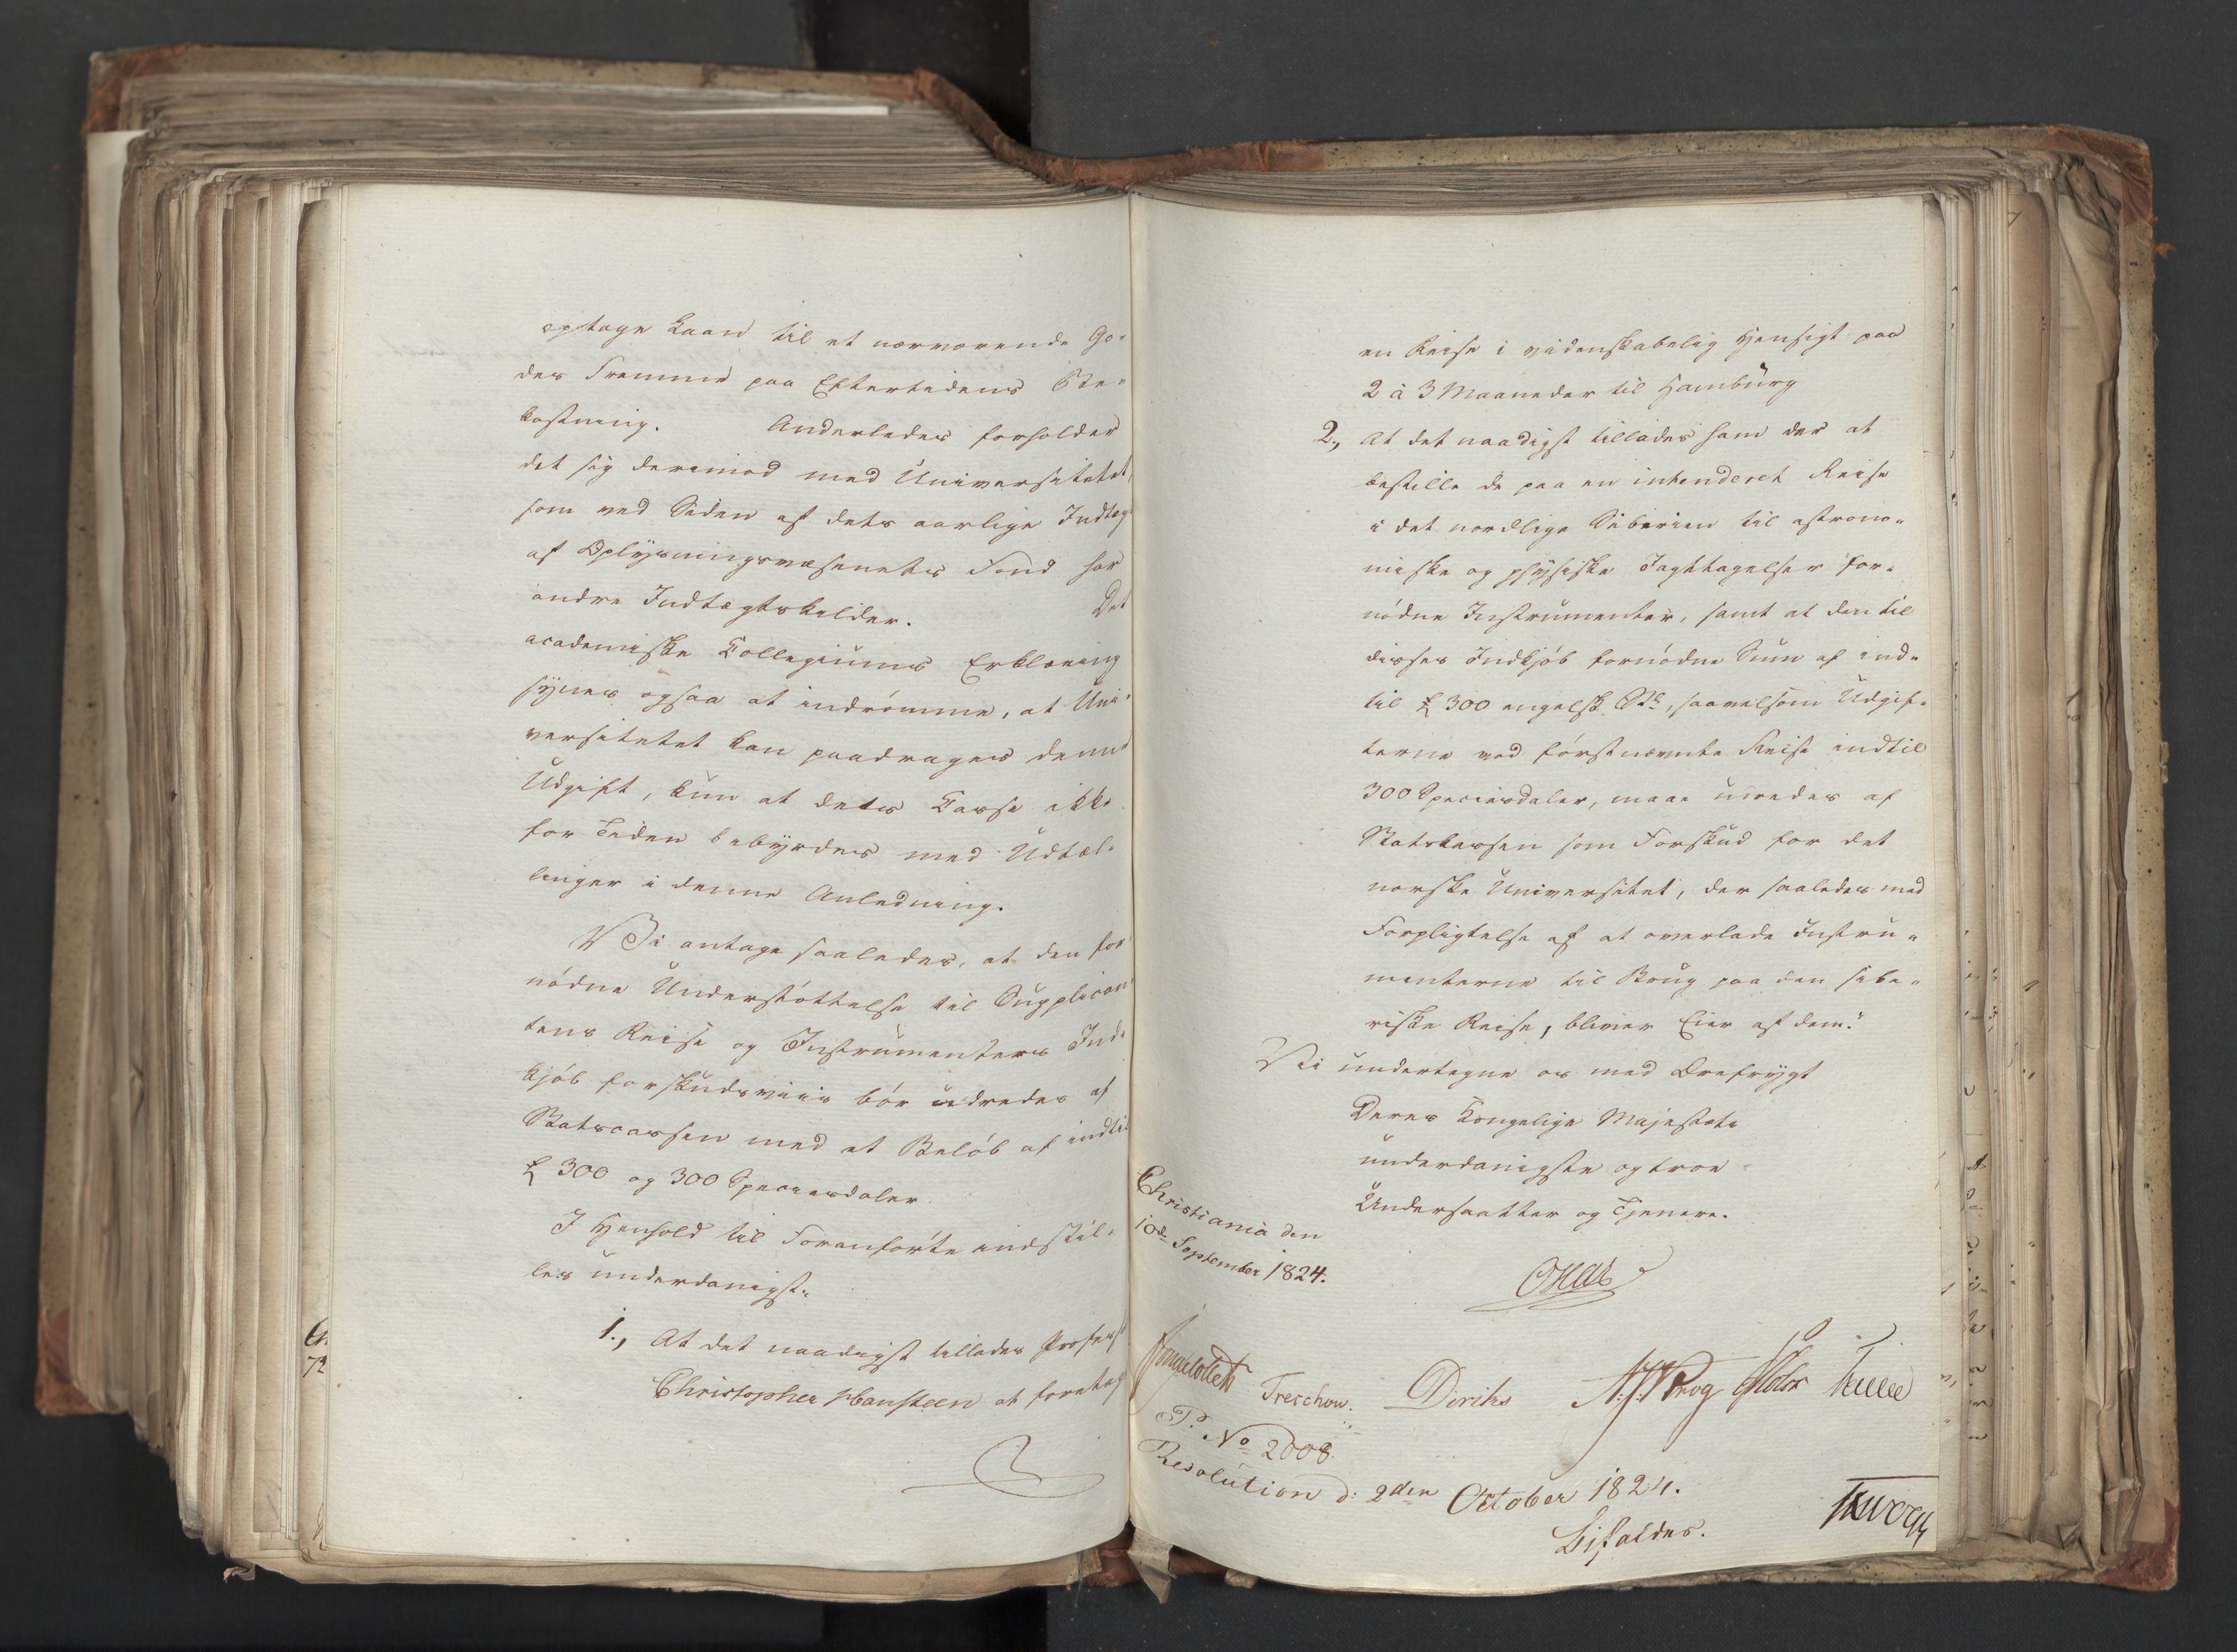 optage Laan til et nærværende Go-
des Fremme paa Eftertidens Be-
kostning. Anderledes forholder
det sig derimod med Universitetet
som ved Siden af dets aarlige Indtægt
af Oplysningsvæsenets Fond har
andre Indtægtskilder. Det
academiske Collegiums Erklæring
synes ogsaa at indrömme, at Uni-
versitetet kan paadrages denne
Udgift, kun at dets Casse ikke
for Tiden bebyrdes med Udtæl-
linger i denne Anledning.
Vi antage saaledes, at den for
nödne Understöttelse til Supplican
tens Reise og Instrumenters Ind-
kjöb forskudsviis bör udredes af
Statscassen med et Belöb af indtil
£ 300 og 300 Speciesdaler
I Henhold til Foranförte indstil-
les underdanigst.
1., At det naadigst tillades Profess
Christopher Hansteen at foretag
en Reise i videnskabelig Hensigt paa
2 à 3 Maaneder til Hamburg
2., At det naadigst tillades ham der at
bestille de paa en intenderet Reise
i det nordlige Siberien til astrono-
miske og physiske Iagttagelser for-
nödne Instrumenter, samt at den til
disses Indkjöb fornödne Sum af ind-
til £ 300 engelsk, saavelsom Udgif-
terne ved förstnævnte Reise indtil
300 Speciesdaler, maae udredes af
Statskassen som Forskud for det
norske Universitet, der saaledes med
Forpligtelse af at overlade Instru-
menterne til Brug paa den sibe-
riske Reise, bliver Eier af dem."
Vi undertegne os med Ærefrygt
Deres Kongelige Majestæts
underdanigste og troe
Undersaatter og Tjenere.
Christiania den
10de September 1824.
Oscar
Treschow. Diriks Krog Holst
P. No 2008.
Resolution d: 2den October 1824.
Bifaldes.